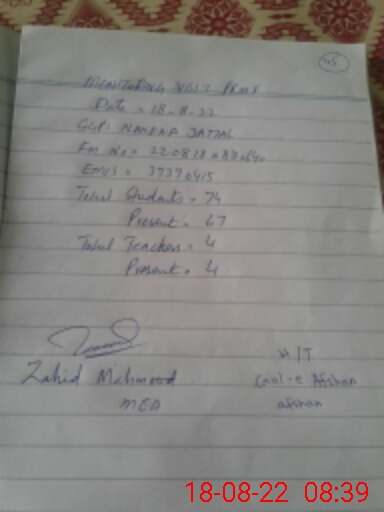 45
MONITORING VISIT PROOF
Date = 18-8-22
GGPS NAMBAR JATTAL
Fm No =
EMIS = 37370415
Total Students = 74
Present = 67
Total Teachers = 4
Present = 4
H/T
Zahid Mahmood
Gul-e-Afshan
MEA
afshan
18-08-22 08:39